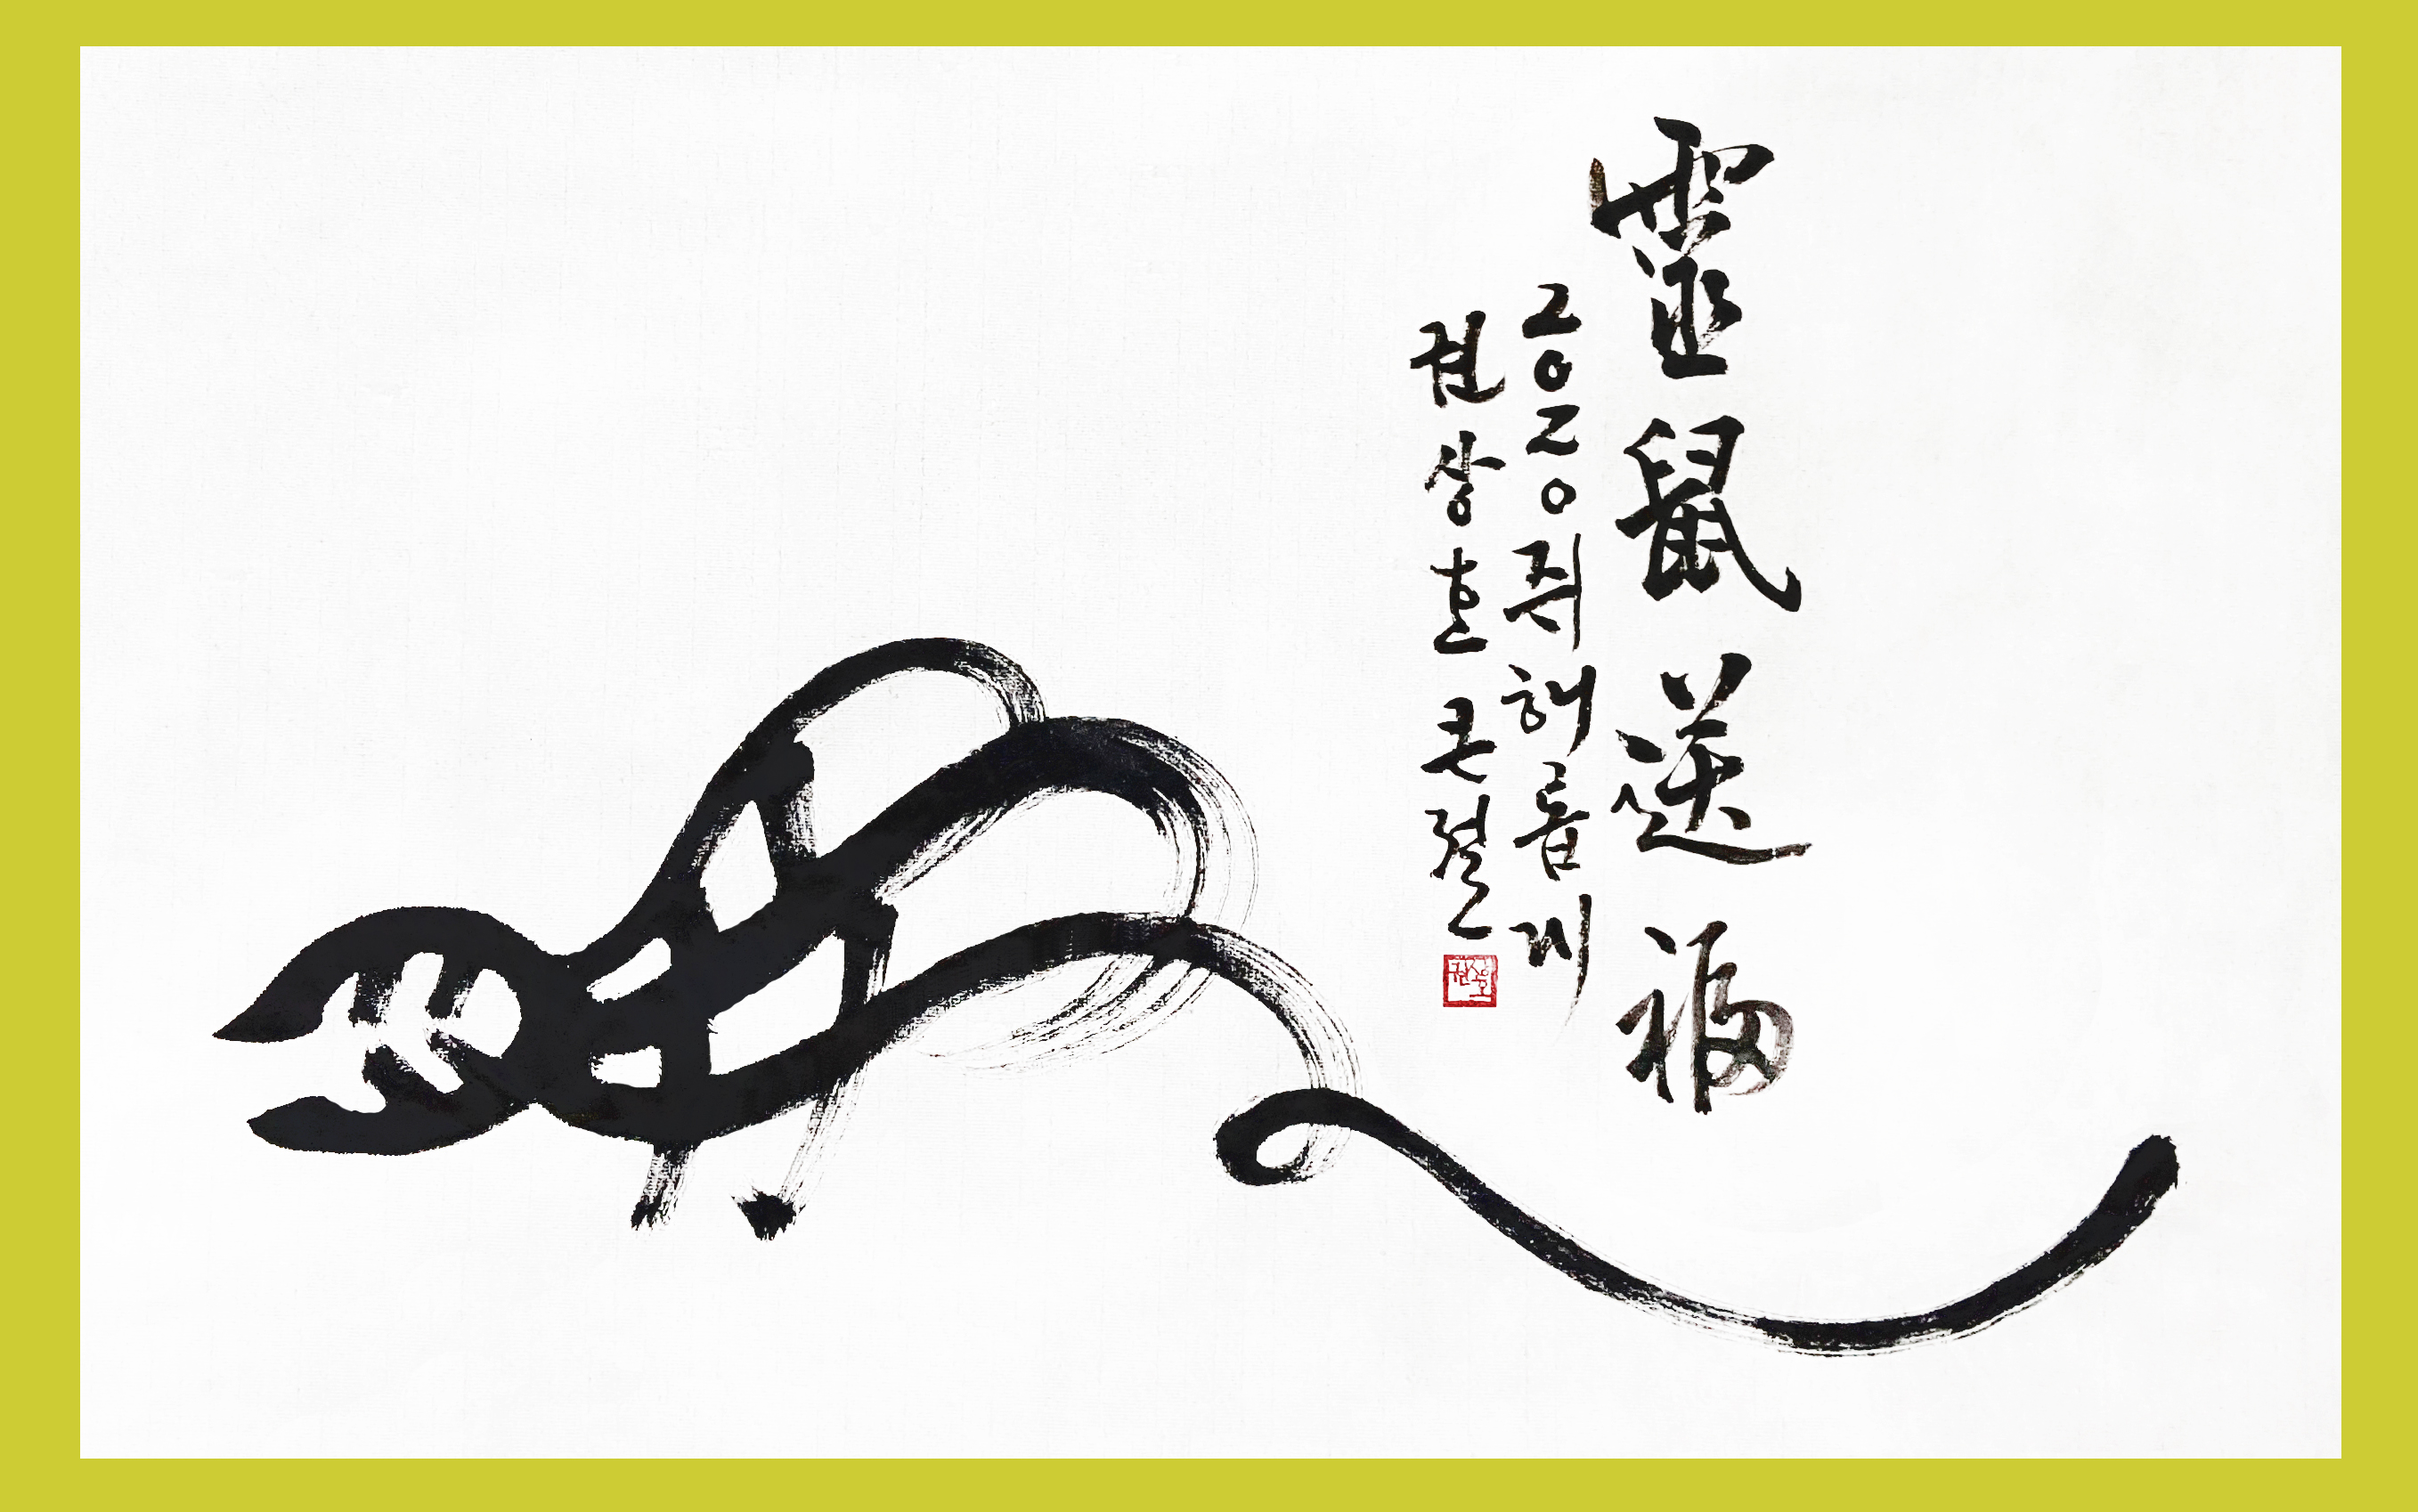 靈鼠送福
2020쥐해롭게
권상호 큰절
권상호